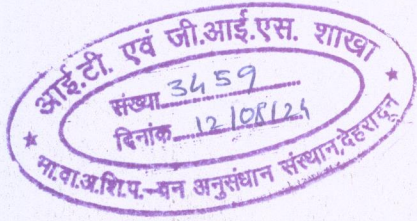 आई.टी. एवं जी.आई.एस. शाखा
संख्या 3459
दिनांक 12/08/24
★ भा.वा.अ.शि.प.–वन अनुसंधान संस्थान, देहरादून ★